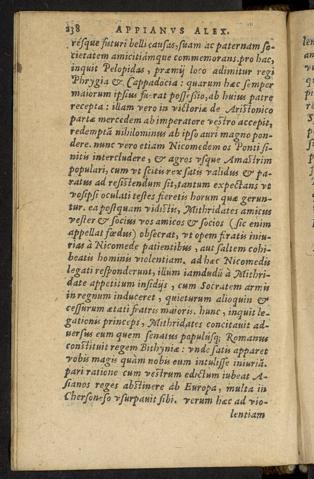 238 APPIANVS ALEX.
resque futuri belli causas, suam ac paternam so-
cietatem amicitiámque commemorans. pro hac,
inquit Pelopidas, præmij loco adimitur regi
Phrygia & Cappadocia: quarum hæc semper
maiorum ipsius fu-rat possessio, ab huius patre
recepta: illam vero in victoriæ de Aristonico
partæ mercedem ab imperatore vestro accepit,
redemptã nihilominus ab ipso auri magno pon-
dere. nunc vero etiam Nicomedem os Ponti fi-
nitis intercludere, & agros vsque Amastrim
populari, cum vt scitis rex satis validus & pa-
ratus ad resistendum sit, tantum expectans vt
vosipsi oculati testes fieretis horum quæ gerun-
tur. ea postquam vidistis, Mithridates amicus
vester & socius vos amicos & socios (sic enim
appellat fœdus) obsecrat, vt opem feratis iniu-
rias à Nicomede patientibus, aut saltem cohi-
beatis hominis violentiam. ad hæc Nicomedis
legati responderunt, illum iamdudũ à Mithri-
date appetitum insidijs, cum Socratem armis
in regnum induceret, quieturum alioquin &
cessurum ætati fratris maioris. hunc, inquit le-
gationis princeps, Mithridates concitauit ad-
uersus eum quem senatus populúsq; Romanus
constituit regem Bithyniæ: vnde satis apparet
vobis magis quàm nobis eum intulisse iniuriã.
pari ratione cum vestrum edictum iubeat A-
sianos reges abstinere ab Europa, multa in
Cherson-so vsurpauit sibi. verum hæc ad vio-
lentiam